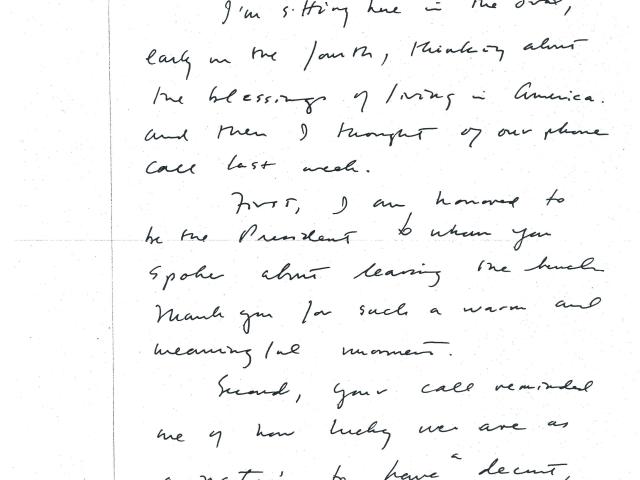 I'm sitting here in the oval,
early on the fourth, thinking about
the blessings of living in America.
and then I thought of our phone
call last week.
First, I am honored to
be the President to whom you
spoke about leaving the bench
Thank you for such a warm and
meaningful moment.
Second, your call reminded
me of how lucky we are as
a nation to have a decent,